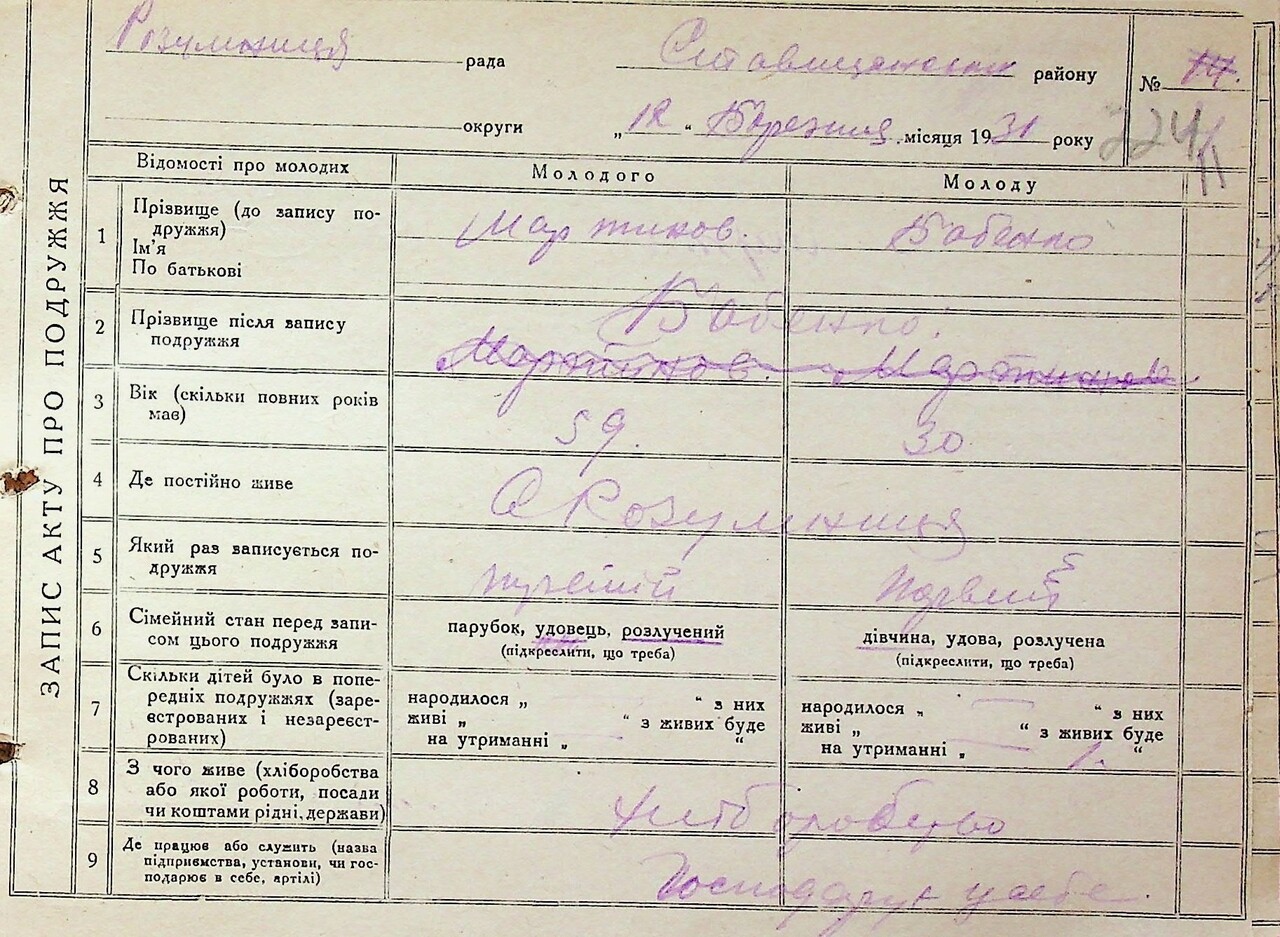 Розумниця рада Ставищанський району № 14.
округи „ 12 “ Березня місяця 1931 року 224
ЗАПИС АКТУ ПРО ПОДРУЖЖЯ
Відомості про молодих Молодого Молоду
1 Прізвище (до запису по-
дружжя)
Ім’я
По батькові
Мартинов. Бабенко
2 Прізвище після запису
подружжя
Бабенко.
Мартинов. Мартинов.
3 Вік (скільки повних років
має)
59. 30
4 Де постійно живе С Розумниця
5 Який раз записується по-
дружжя
третій Первий
6 Сімейний стан перед запи-
сом цього подружжя
парубок, удовець, розлучений
(підкреслити, що треба)
дівчина, удова, розлучена
(підкреслити, що треба)
7 Скільки дітей було в попе-
редніх подружжях (заре-
єстрованих і незареєст-
рованих)
народилося „ — “ з них
живі „ “ з живих буде
на утриманні „ — “
народилося „ — “ з них
живі „ “ з живих буде
на утриманні „ 1. “
8 З чого живе (хліборобства
або якої роботи, посади
чи коштами рідні, держави)
Хліборобство
9 Де працює або служить (назва
підприємства, установи, чи гос-
подарює в себе, артілі)
Господарує у себе.